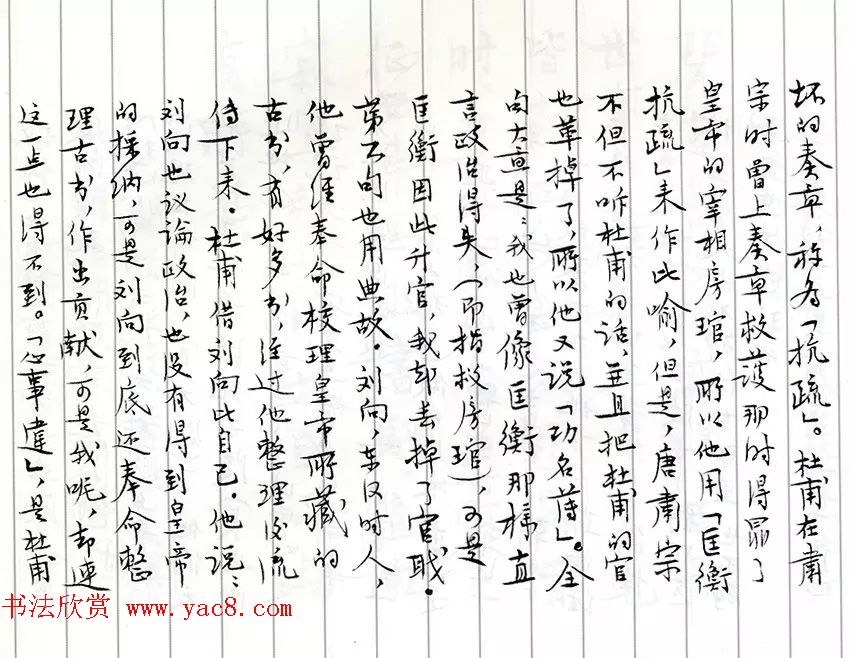 坏的奏章，称为「抗疏」。杜甫在肃
宗时曾上奏章救护那时得罪了
皇帝的宰相房琯，所以他用「匡衡
抗疏」来作比喻，但是，唐肃宗
不但不听杜甫的话，并且把杜甫的官
也革掉了，所以他又说「功名薄」。全
句大意是：我也曾像匡衡那样直
言政治得失，（即指救房琯），可是
匡衡因此升官，我却丢掉了官职。
第六句也用典故。刘向，东汉时人，
他曾经奉命校理皇帝所藏的
古书，有好多书，经过他整理後流
传下来。杜甫借刘向比自己。他说：
刘向也议论政治，也没有得到皇帝
的採纳，可是刘向到底还奉命整
理古书，作出贡献，可是我呢，却连
这一点也得不到。「心事違」，是杜甫
书法欣赏 www.yac8.com